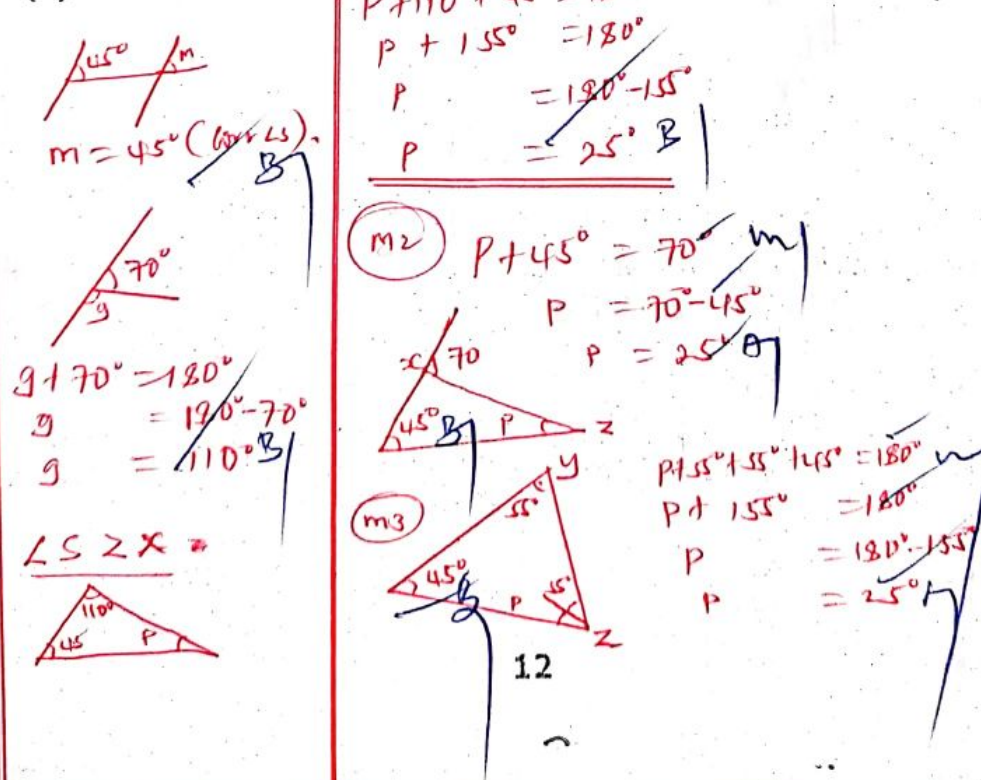 45° m
m = 45° (Corr ∠s).
B1
70°
g
g + 70° = 180°
g = 180° - 70°
g = 110° B1
∠S ZX
110°
45 P
P + 155° = 180°
P = 180° - 155°
P = 25° B1
M2
P + 45° = 70° M1
P = 70° - 45°
P = 25° A1
x 70
45° B1 P Z
M3
y
55°
45° P 55°
B1
Z
P + 55° + 55° + 45° = 180° M1
P + 155° = 180°
P = 180° - 155°
P = 25° A1
12